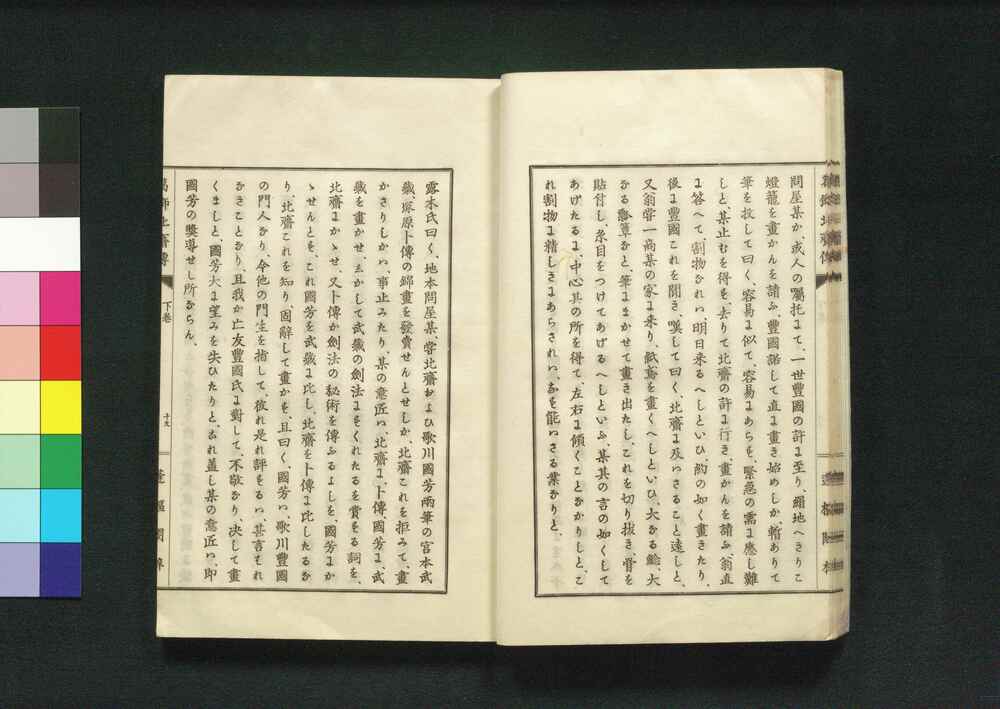 問屋某か、或人の囑托にて、一世豐國の許に至り、絹地へきりこ
燈籠を畫かんを請ふ、豐國諾して直に畫き始めしか、暫ありて
筆を投して曰く、容易に似て、容易にあらす、緊急の需に應し難
しと、某止むを得す、去りて北齋の許に行き、畫かんを請ふ、翁直
に答へて、割物なれハ、明日來るへしといひ、約の如く畫きたり、
後に豐國これを聞き、嘆して曰く、北齋に及ハさること遠しと、
又翁甞一商某の家に來り、紙鳶を畫くへしといひ、大なる鯰、大
なる瓢簞なと、筆にまかせて畫き出たし、これを切り拔き、骨を
貼付し、糸目をつけてあげるへしといふ、某其の言の如くして
あげたるに、中心其の所を得て、左右に傾くことなかりしと、こ
れ割物に精しきにあらされハ、なを能ハさる業なりと、
露木氏曰く、地本問屋某、甞北齋および歌川國芳兩筆の宮本武
藏、塚原卜傳の錦畫を發賣せんとせしか、北齋これを拒みて、畫
かさりしかハ、事止みたり、某の意匠ハ、北齋に、卜傳、國芳に、武
藏を畫かせ、而して武藏の劍法にすくれたるを賞する詞を、
北齋にかゝせ、又卜傳か劍法の秘術を傳ふるよしを、國芳にか
ゝせんとす、これ國芳を武藏に比し、北齋を卜傳に比したるな
り、北齋これを知り、固辭して畫かす、且曰く、國芳ハ、歌川豐國
の門人なり、今他の門生を指して、彼れ是れ評をるハ、甚言すれ
なきことなり、且我か亡友豐國氏に對して、不敬なり、決して畫
くましと、國芳大に望みを失ひたりと、これ蓋し某の意匠ハ、即
國芳の奬導せし所ならん、
葛飾北齋傳
下卷
蓬樞閣梓